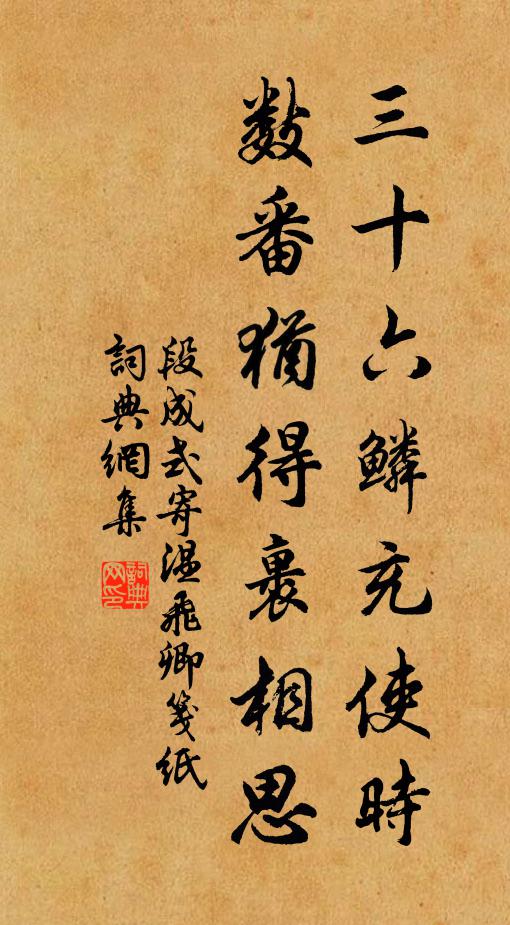 三十六鳞充使時
數番猶得裹相思
段成式寄溫飛卿箋紙
詞典網集
詞典网印